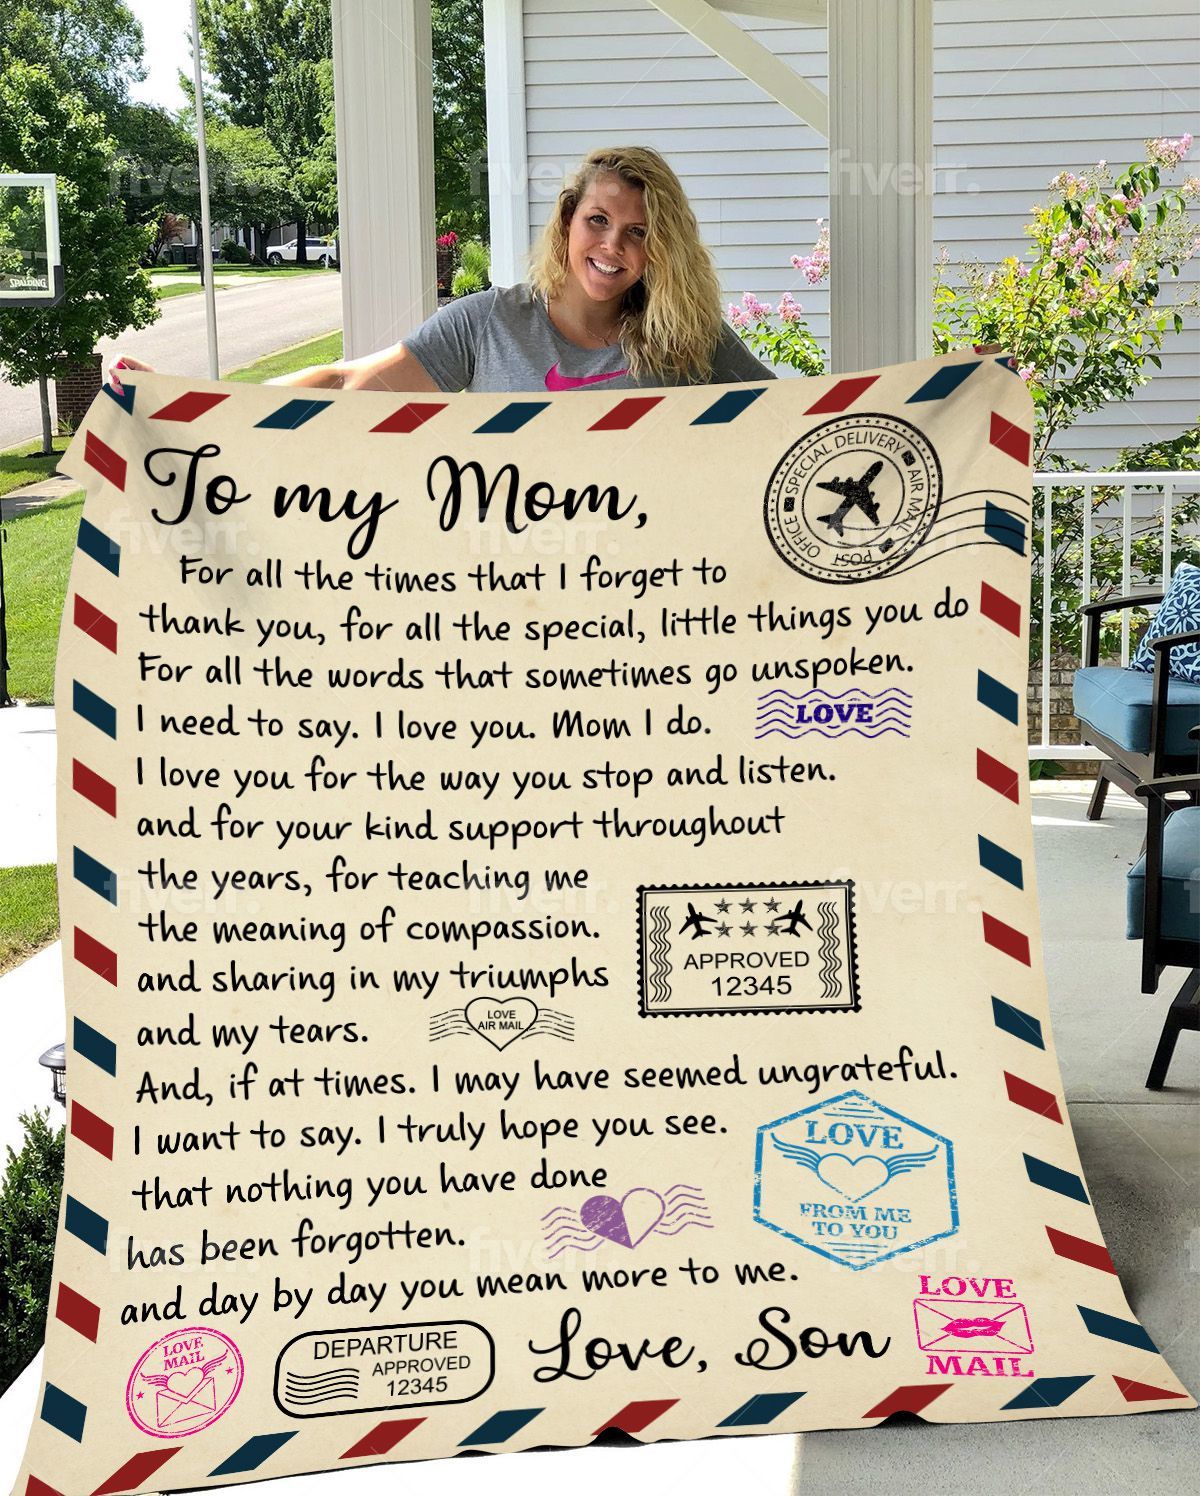 fiverr.
fiverr.
fiverr.
SPALDING
To my Mom,
SPECIAL DELIVERY
AIR MAIL
POST
OFFICE
fiverr.
fiverr.
fiverr.
For all the times that I forget to
thank you, for all the special, little things you do
For all the words that sometimes go unspoken.
I need to say. I love you. Mom I do.
LOVE
I love you for the way you stop and listen.
and for your kind support throughout
the years, for teaching me
fiverr.
fiverr.
fiverr.
the meaning of compassion.
APPROVED
12345
and sharing in my triumphs
and my tears.
LOVE
AIR MAIL
And, if at times. I may have seemed ungrateful.
I want to say. I truly hope you see.
LOVE
FROM ME
TO YOU
that nothing you have done
has been forgotten.
fiverr.
fiverr.
fiverr.
and day by day you mean more to me.
LOVE
MAIL
DEPARTURE
APPROVED
12345
Love, Son
LOVE
MAIL